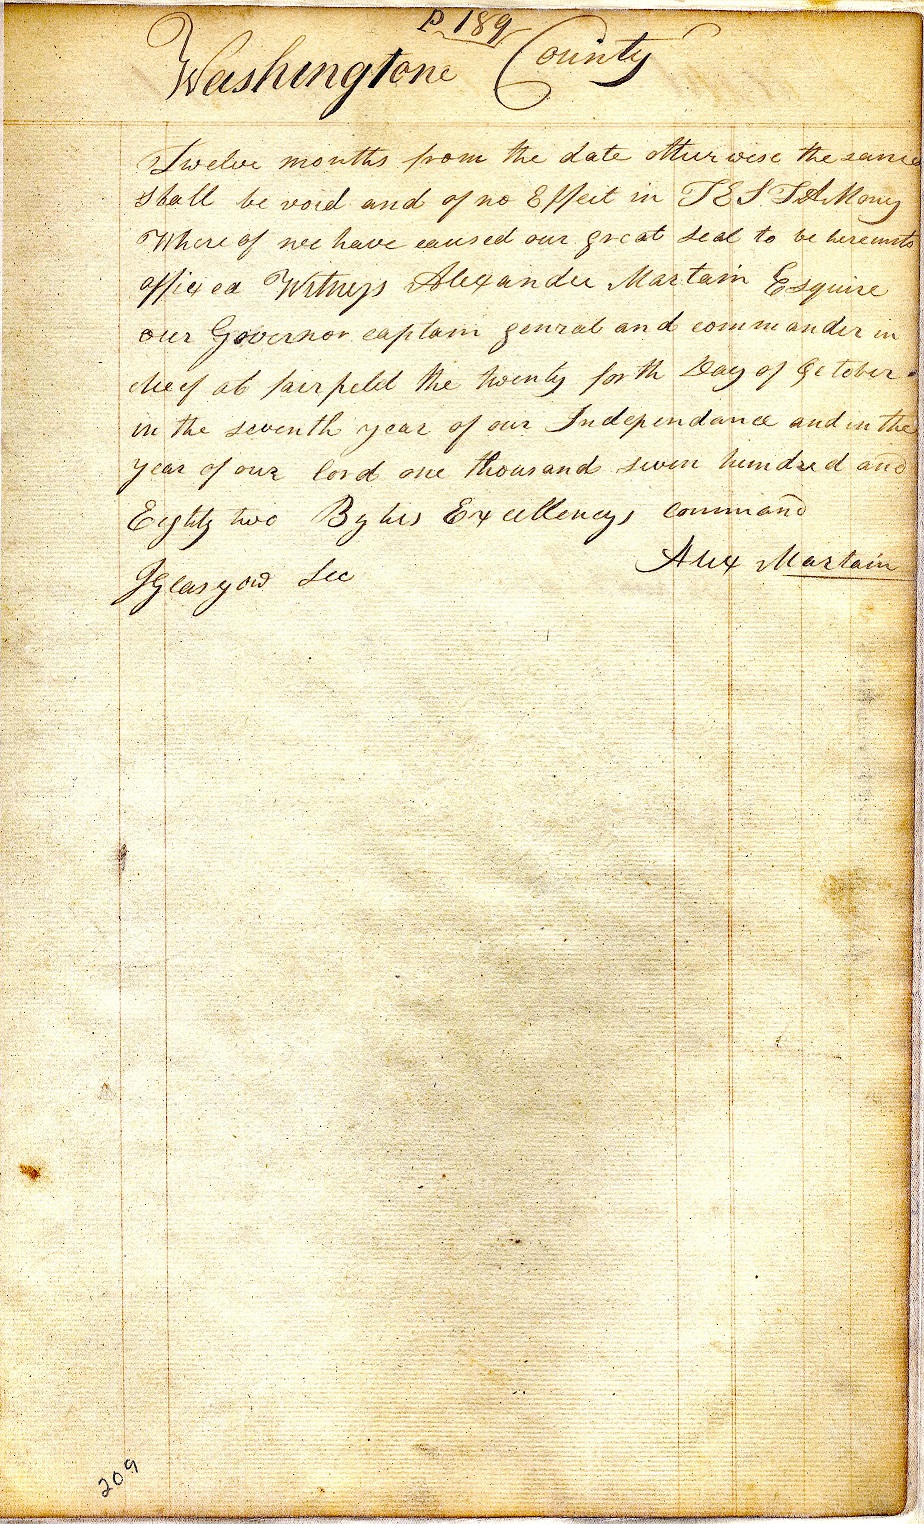 P. 189
Washingtone County
Twelve months from the date otherwise the same
shall be void and of no Effect in TESTAMony
Where of we have caused our great seal to be hereunto
affixed Witness Alexander Martain Esquire
our Governor captain genral and commander in
cheef at fairfield the twenty forth Day of October
in the seventh year of our Independance and in the
year of our lord one thousand seven hundred and
Eighty two By his Excellencys command
Alex Martain
J Glasgow Sec
209